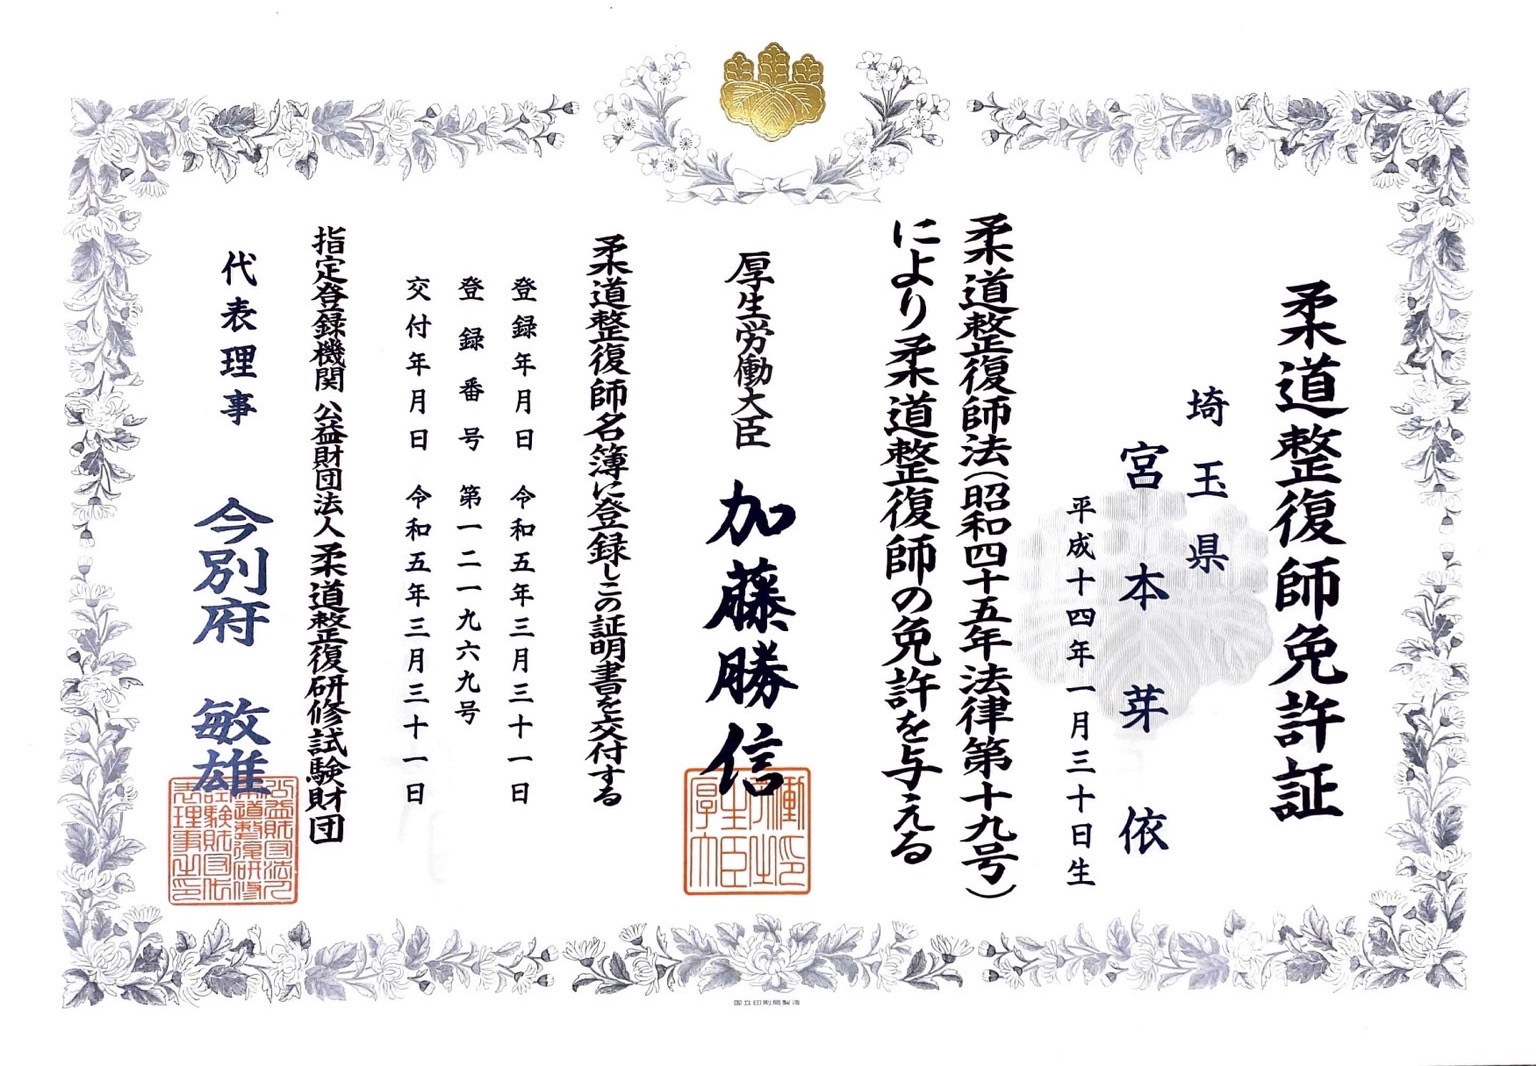 柔道整復師免許証
埼玉県
宮本芽依
平成十四年一月三十日生
柔道整復師法（昭和四十五年法律第十九号）
により柔道整復師の免許を与える
厚生労働大臣 加藤勝信
柔道整復師名簿に登録しこの証明書を交付する
登録年月日 令和五年三月三十一日
登録番号 第一二一九六九号
交付年月日 令和五年三月三十一日
指定登録機関 公益財団法人 柔道整復研修試験財団
代表理事 今別府 敏雄
国立印刷局製造